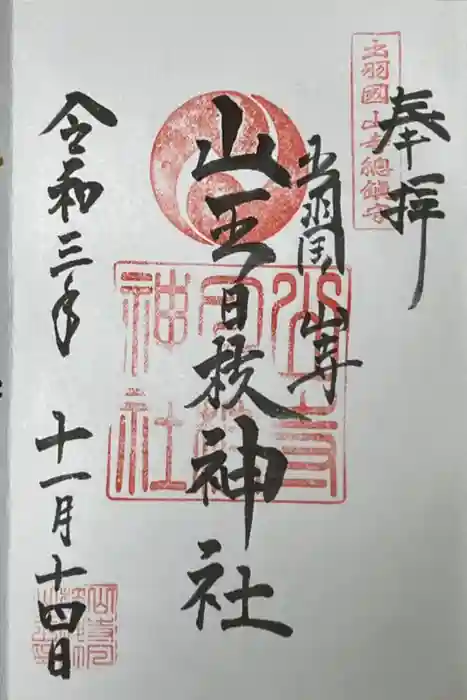 奉拝
出羽國山寺總鎮守
出羽国 山寺
山王日枝神社
山寺日枝神社
令和三年 十一月十四日